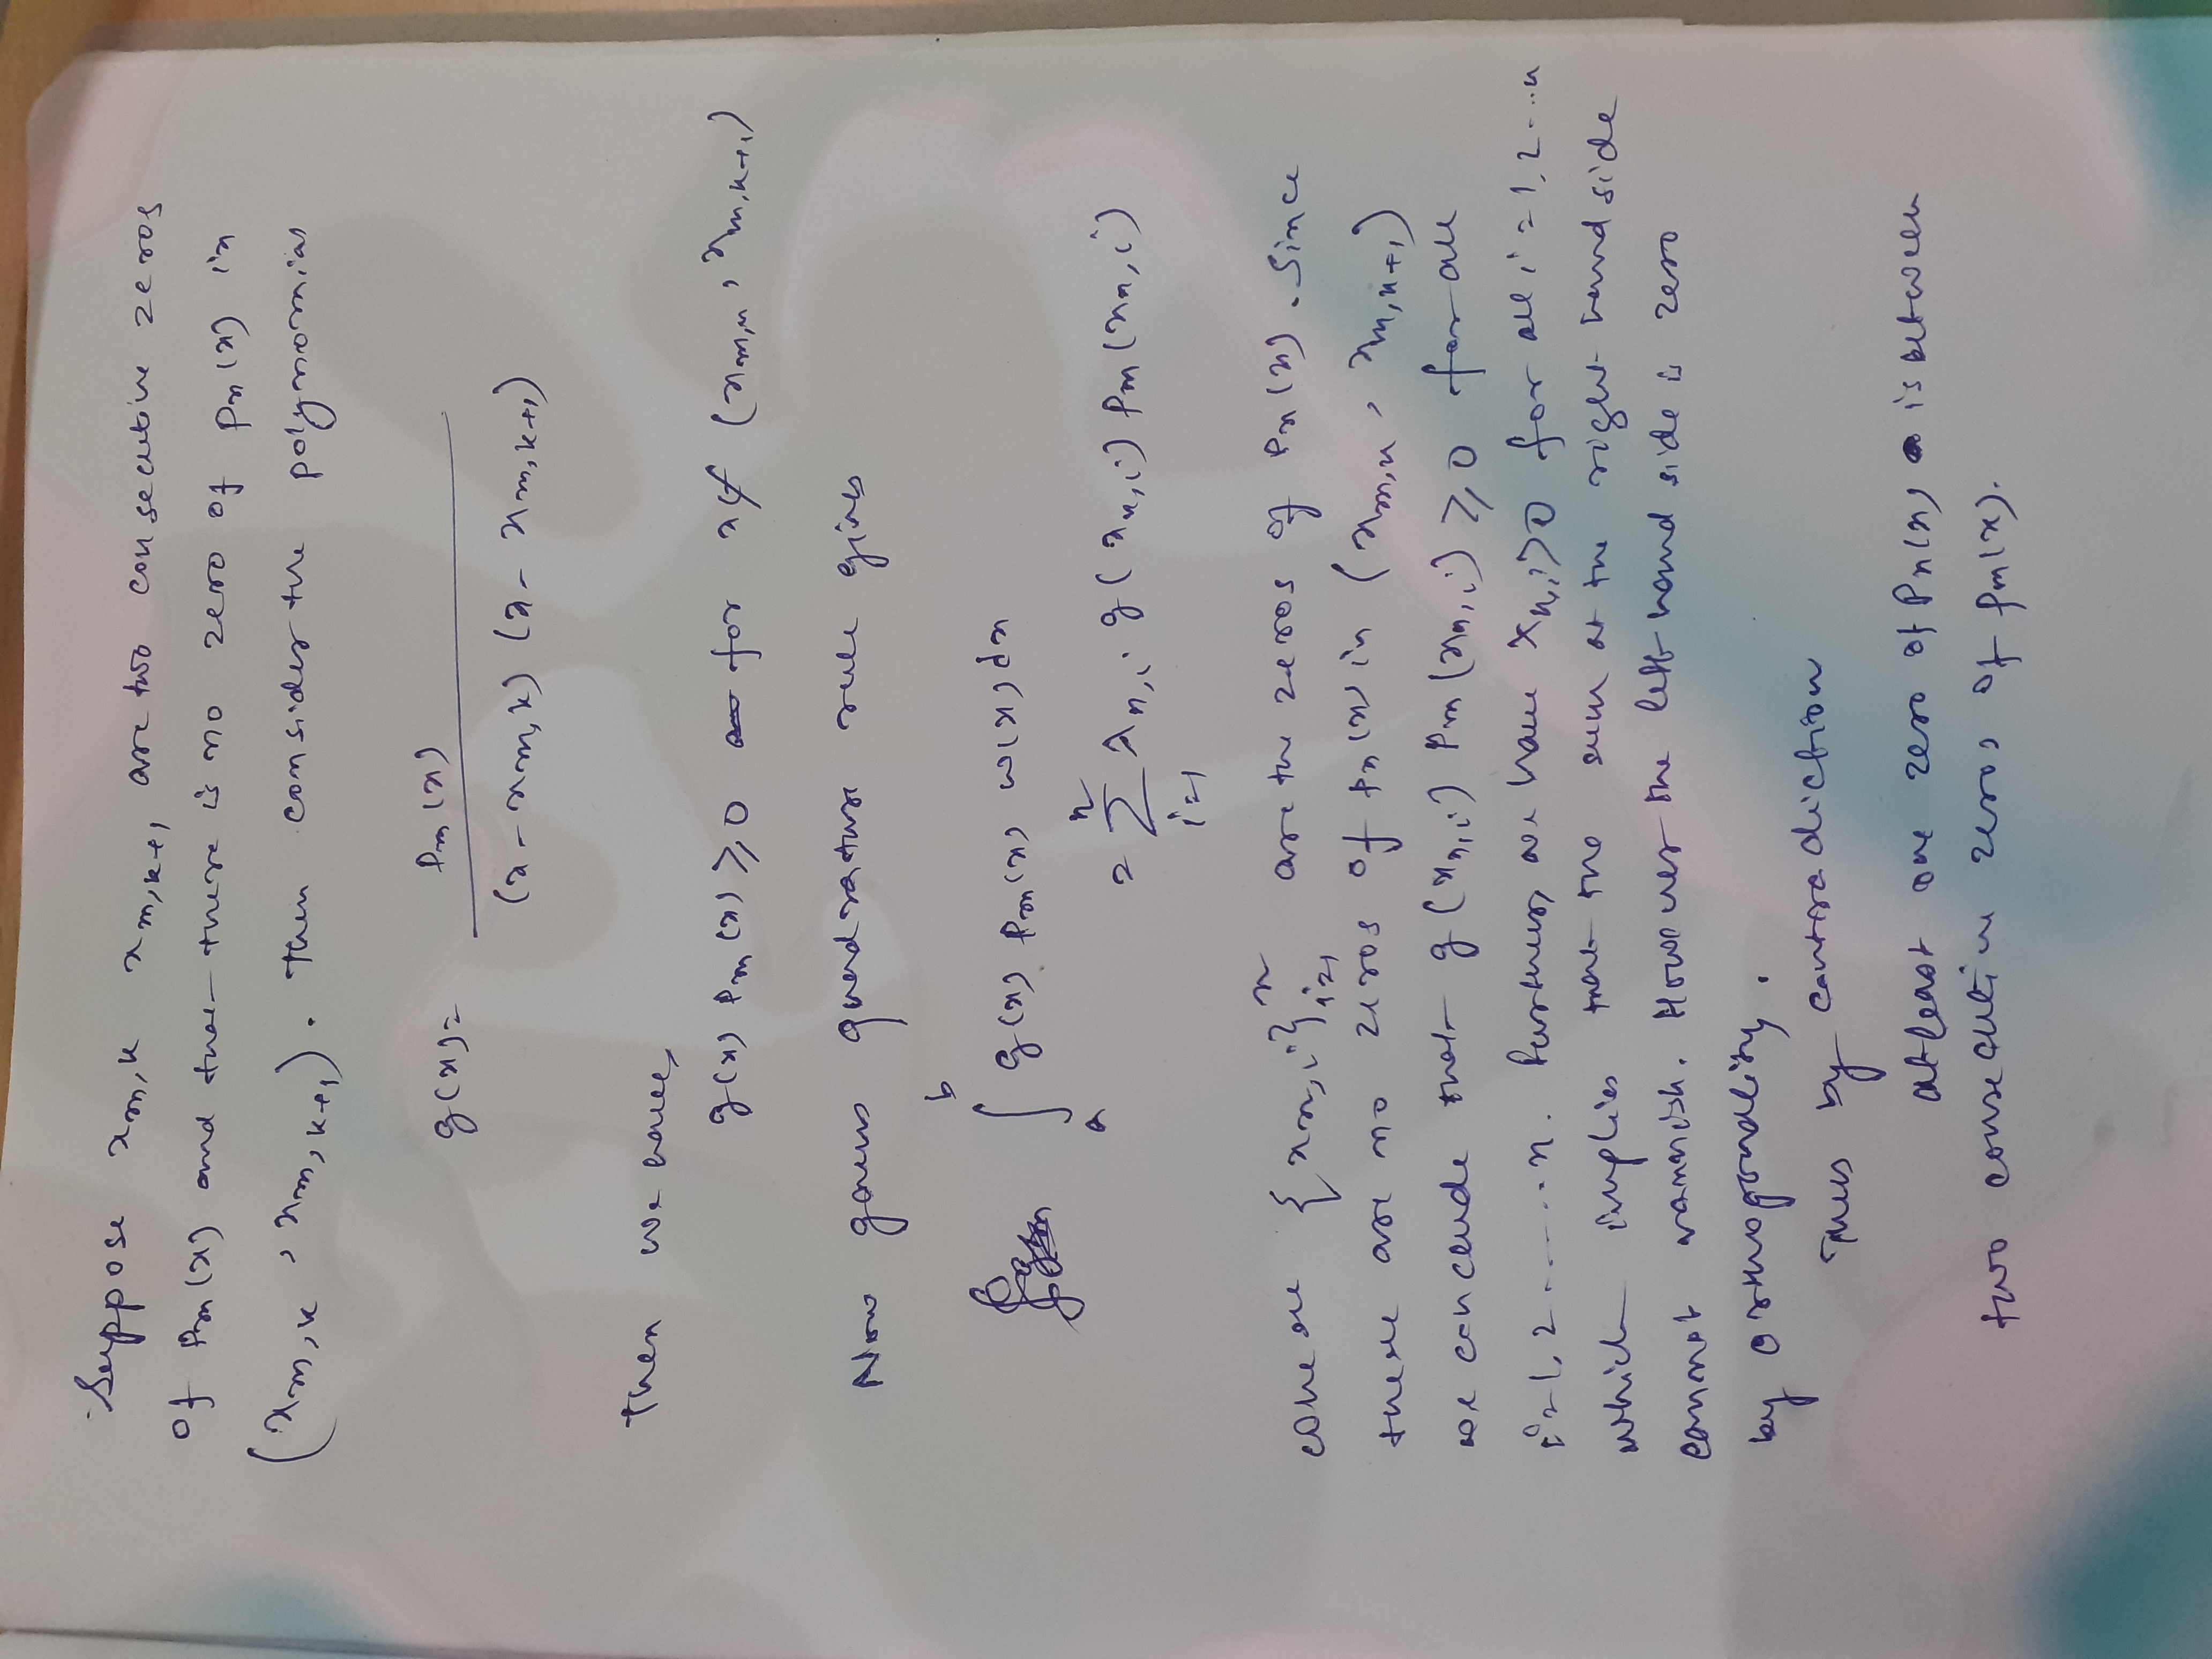 Suppose x_{m,k} x_{m,k+1} are two consecutive zeros
of P_m(x) and that there is no zero of P_n(x) in
(x_{m,k}, x_{m,k+1}). Then consider the polynomial
g(x) = P_m(x) / (x - x_{m,k}) (x - x_{m,k+1})
Then we have,
g(x) P_m(x) ≥ 0 for x ∉ (x_{m,k}, x_{m,k+1})
Now gauss quadrature rule gives
∫_a^b g(x) P_m(x) w(x) dx
= Σ_{i=1}^n λ_{n,i} g(x_{n,i}) P_m(x_{n,i})
where {x_{n,i}}_{i=1}^n are the zeros of P_n(x). Since
there are no zeros of P_n(x) in (x_{m,k}, x_{m,k+1})
we conclude that g(x_{n,i}) P_m(x_{n,i}) ≥ 0 for all
i=1,2......n. Further, we have λ_{n,i} > 0 for all i = 1,2...n
which implies that the sum at the right hand side
cannot vannish. However the left hand side is zero
by orthogonality.
Thus by contradiction
atleast one zero of P_n(x) is between
two consecutive zeros of P_m(x).